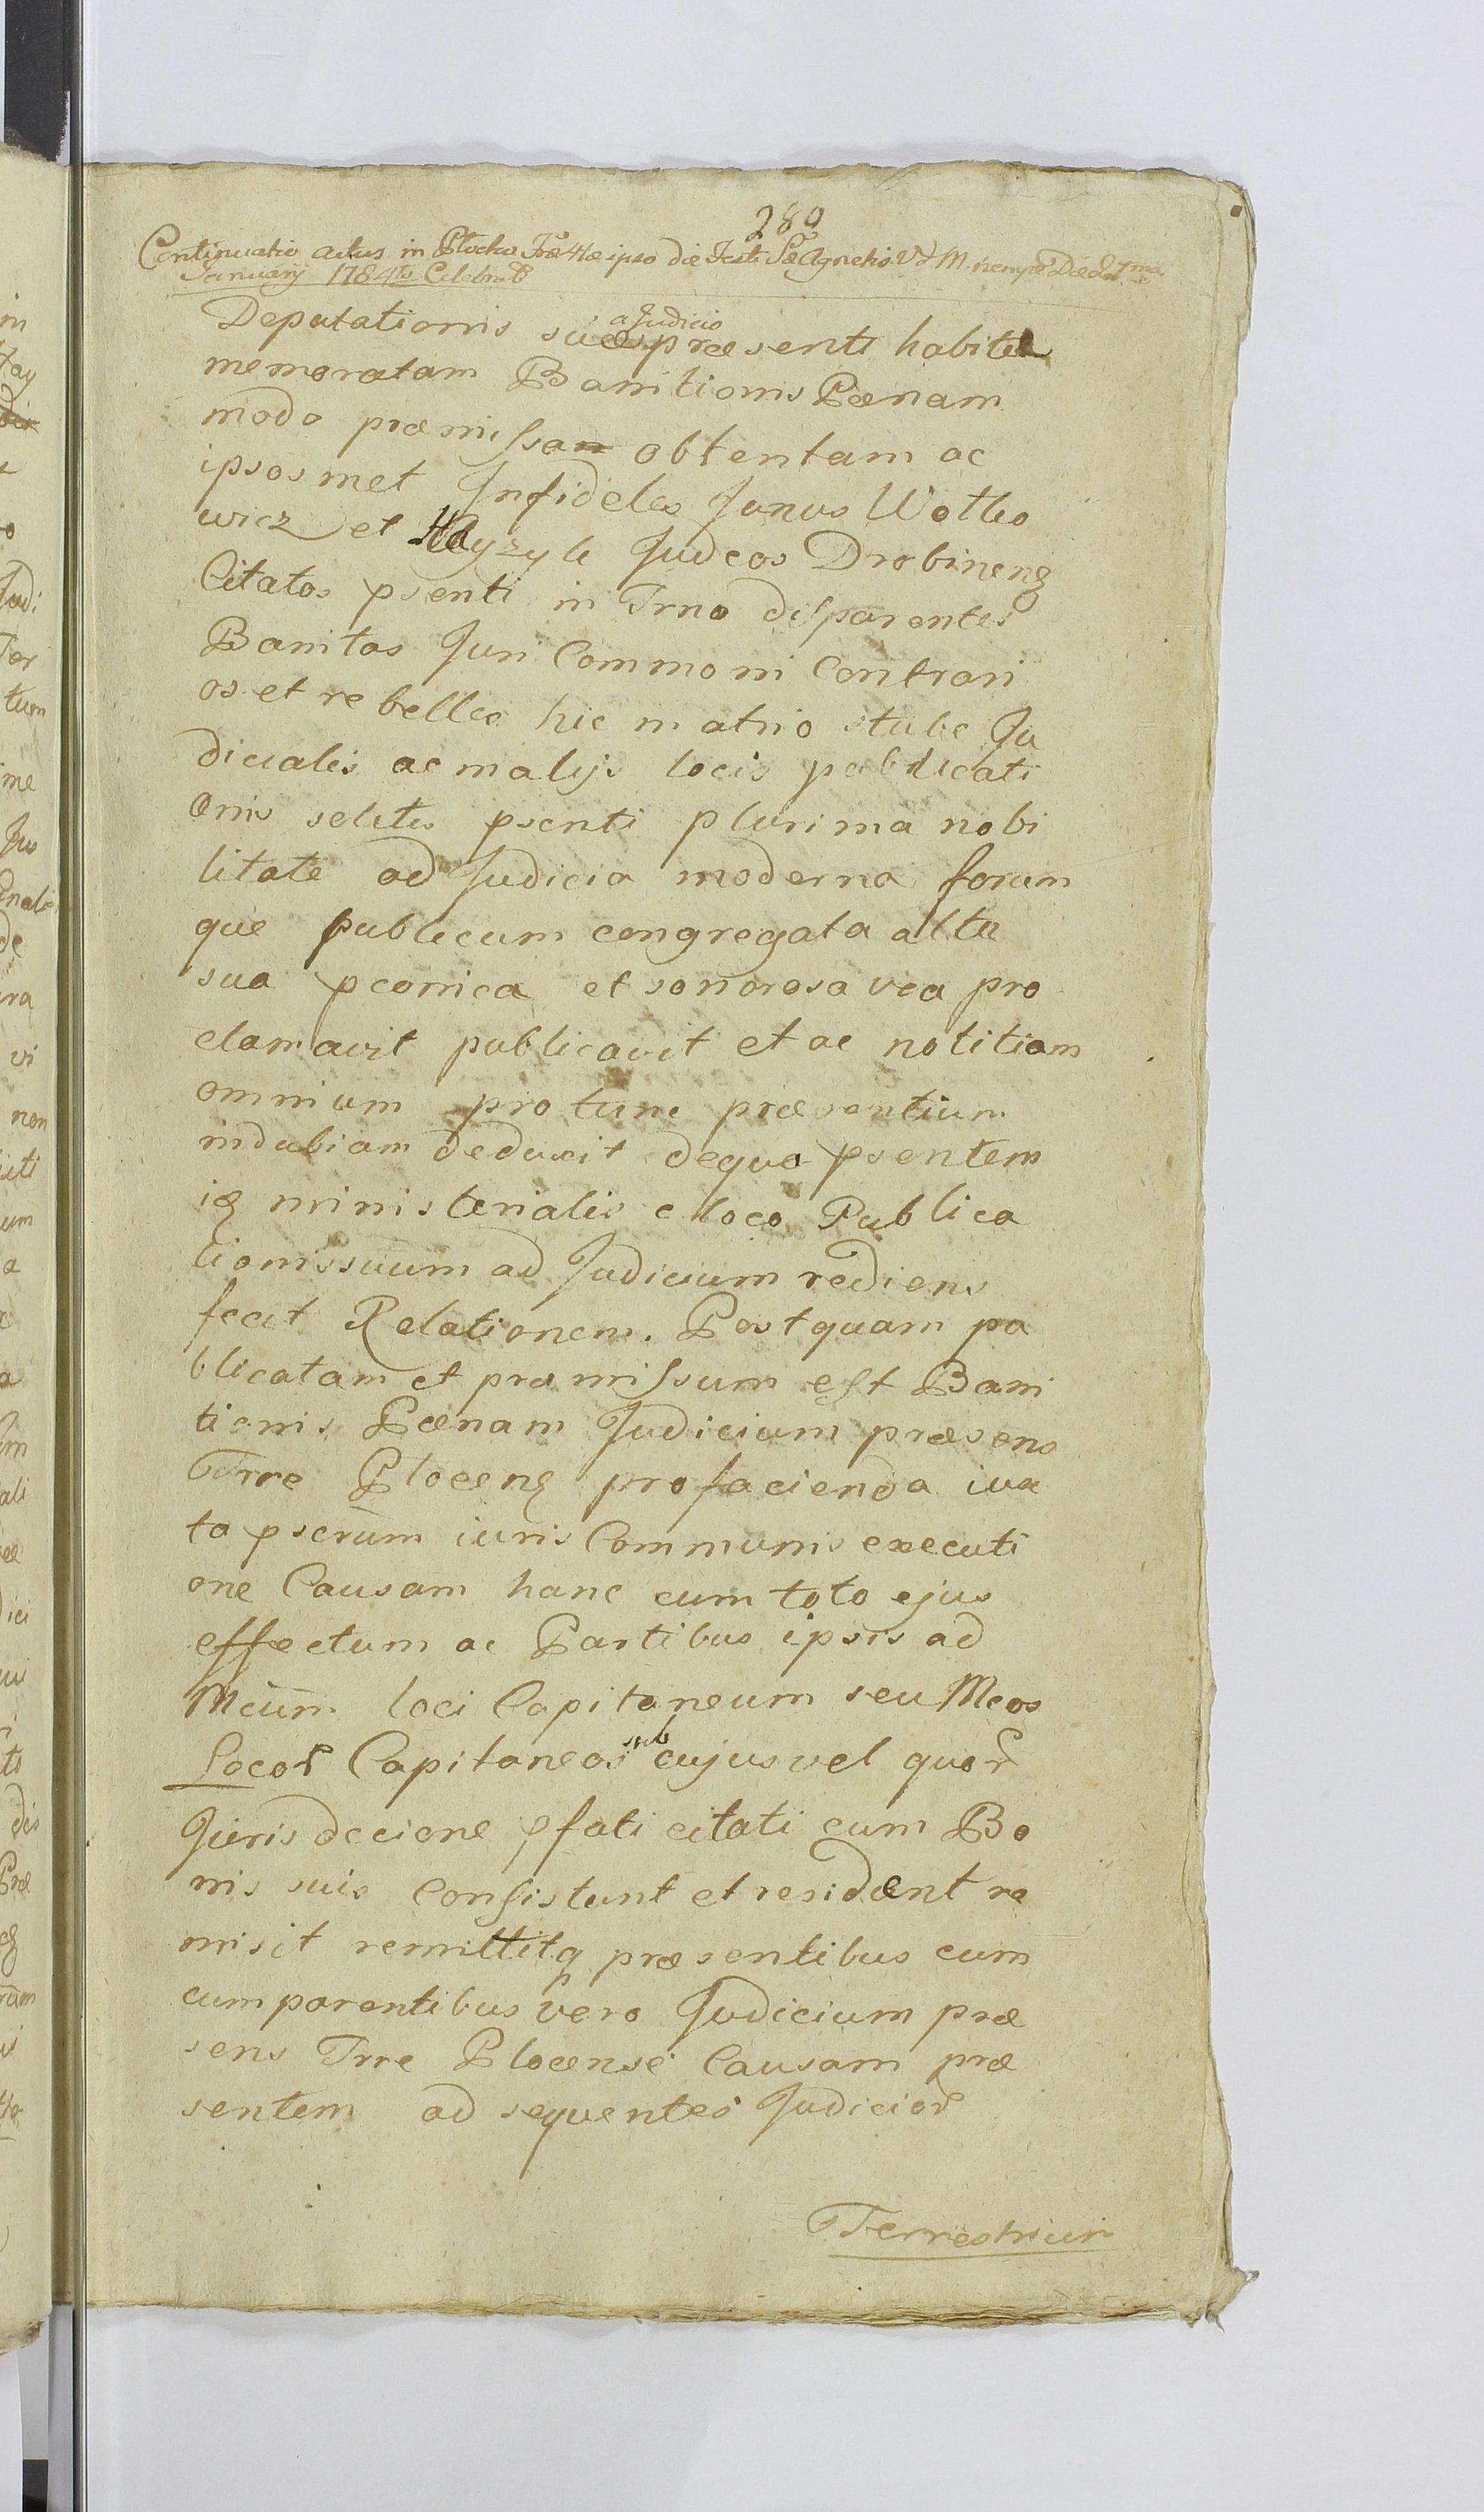 280
Continuatio actus in Plocko Feria 4ta ipso die Festi Sae Agnetis V et M. nempe Die 21ma
Januarij 1784to Celebrat
a Judicio
Deputationis suae praesenti habite
memoratam Banitionis Paenam
modo praemissa obtentam ac
ipsosmet Infideles Junus Wolko
wicz et Hayzyk Judeos Drobinenẜ
Citatos psenti in Trno disparentes
Banitos Juri Commoni Contrari
os et rebelles hic in atrio stube Ju
dicialis ac in alijs locis publicati
onis solitis psenti plurima nobi
litate ad Judicia moderna forum
que publicum congregata alta
sua pconica et sonorosa voa pro
clamavit publicavit et ac notitiam
omnium protunc praesentium
indubiam deduxit dequo psentem
iẜ ministerialis e loco Publica
tionis suum ad Judicium rediens
fecit Relationem. Postquam pu
blicatam et praemissum est Bani
tionis Paenam Judicium praesens
Trre Plocenẜ pro facienda iux
ta pscrum iuris Communis executi
one Causam hanc cum toto ejus
effectum ac Partibus ipsis ad
Mcum loci Capitaneum seu Mcos
sub
Locor Capitaneos cujusvel quor
Jurisdecione pfati citati cum Bo
nis suis Consistunt et resident re
misit remittitq praesentibus cum
cumparentibus vero Judicium prae
sens Trre Plocense Causam prae
sentem ad sequentes Judicior
Terrestrium